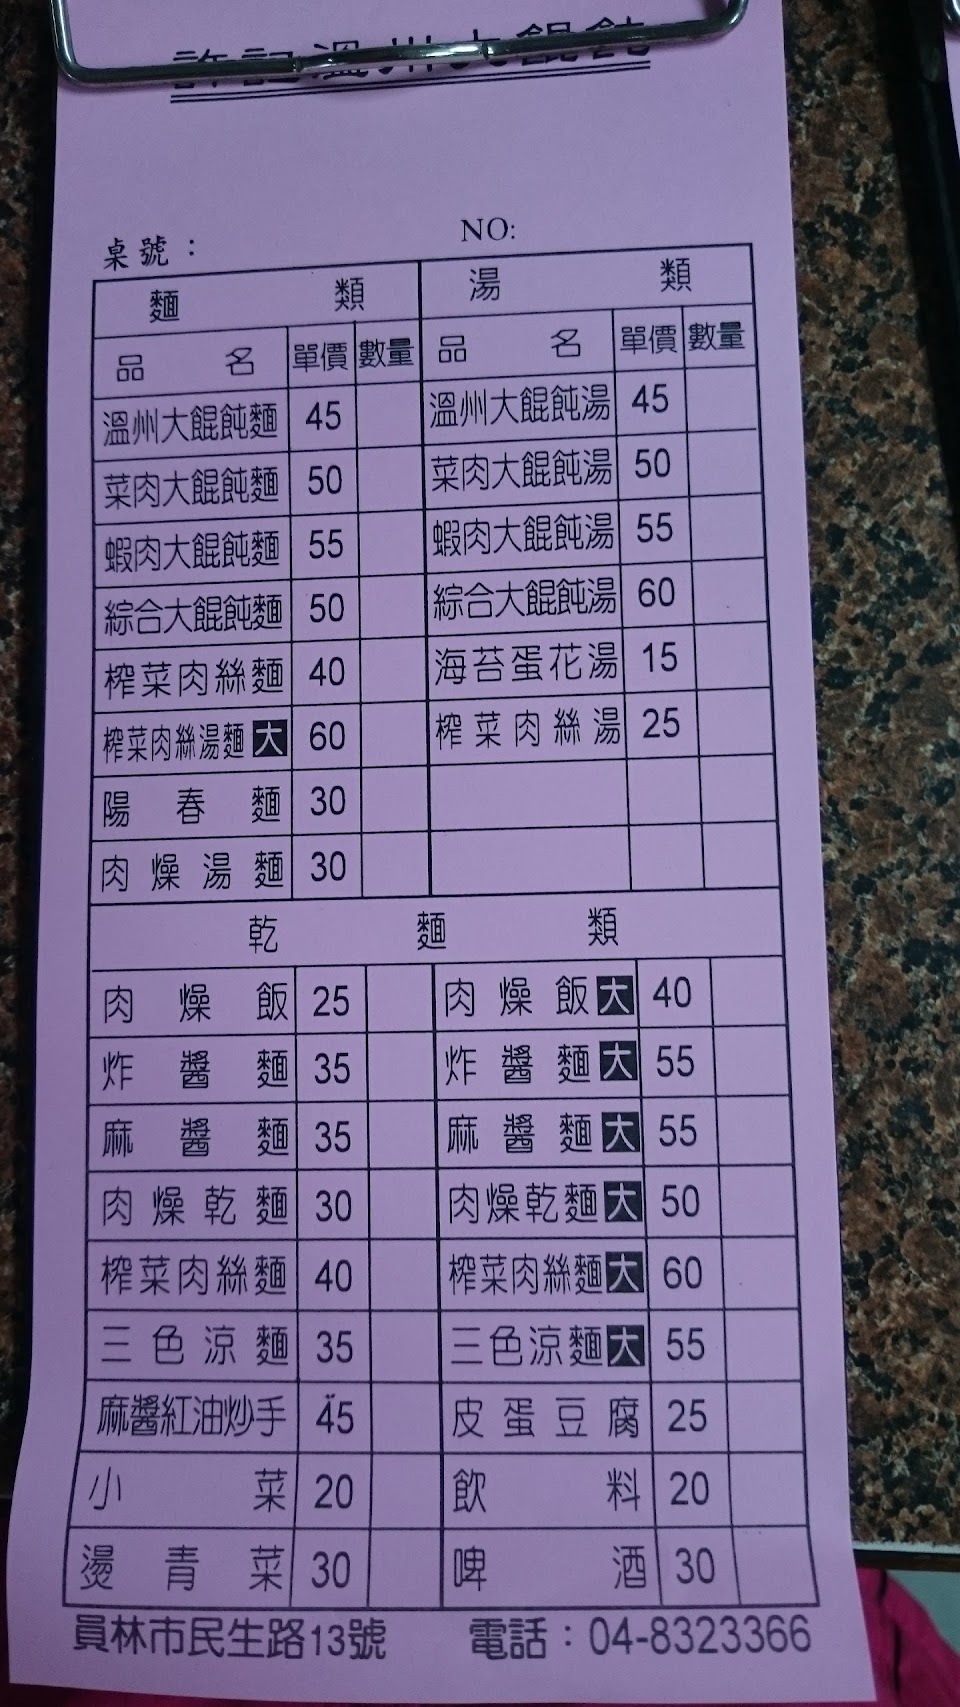 許記溫州大餛飩
桌號： NO:
麵 類 湯 類
品 名 單價 數量 品 名 單價 數量
溫州大餛飩麵 45 溫州大餛飩湯 45
菜肉大餛飩麵 50 菜肉大餛飩湯 50
蝦肉大餛飩麵 55 蝦肉大餛飩湯 55
綜合大餛飩麵 50 綜合大餛飩湯 60
榨菜肉絲麵 40 海苔蛋花湯 15
榨菜肉絲湯麵大 60 榨菜肉絲湯 25
陽春麵 30
肉燥湯麵 30
乾 麵 類
肉燥飯 25 肉燥飯大 40
炸醬麵 35 炸醬麵大 55
麻醬麵 35 麻醬麵大 55
肉燥乾麵 30 肉燥乾麵大 50
榨菜肉絲麵 40 榨菜肉絲麵大 60
三色涼麵 35 三色涼麵大 55
麻醬紅油炒手 45 皮蛋豆腐 25
小菜 20 飲料 20
燙青菜 30 啤酒 30
員林市民生路13號 電話：04-8323366